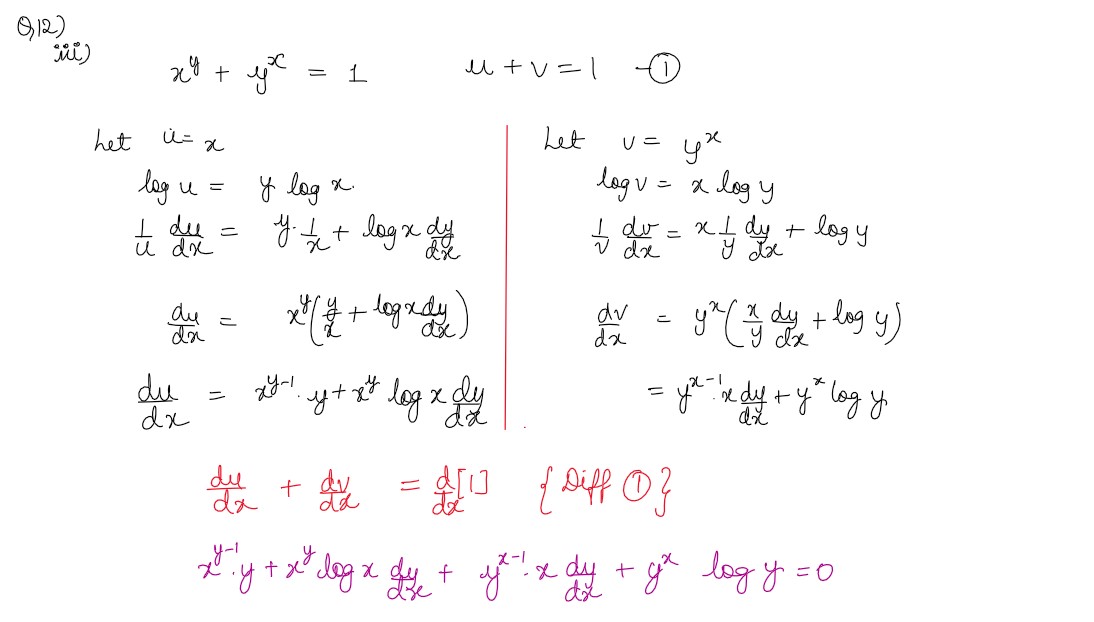 Q12)
iii)
x^y + y^x = 1 u + v = 1 —①
Let u = x
log u = y log x.
1/u du/dx = y · 1/x + log x dy/dx
du/dx = x^y (y/x + log x dy/dx)
du/dx = x^(y-1) · y + x^y log x dy/dx
Let v = y^x
log v = x log y
1/v dv/dx = x 1/y dy/dx + log y
dv/dx = y^x (x/y dy/dx + log y)
= y^(x-1) · x dy/dx + y^x log y
du/dx + dv/dx = d/dx [1] {Diff ①}
x^(y-1) · y + x^y log x dy/dx + y^(x-1) · x dy/dx + y^x log y = 0